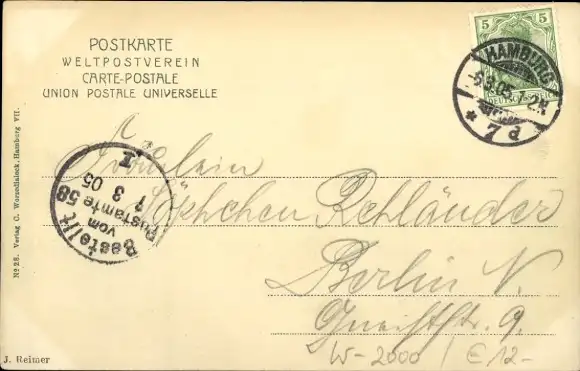 POSTKARTE
WELTPOSTVEREIN
CARTE-POSTALE
UNION POSTALE UNIVERSELLE
5 5
DEUTSCHES REICH
HAMBURG
-6.3.05. 1-2N.
* 7 d
Bestellt
vom
Postamte 58
7 3 05
I.
Fräulein
Rehländer
Berlin N.
Gneiststr. 9.
W-2000 / € 12-
No 28. Verlag C. Worzedialeck, Hamburg VII.
J. Reimer